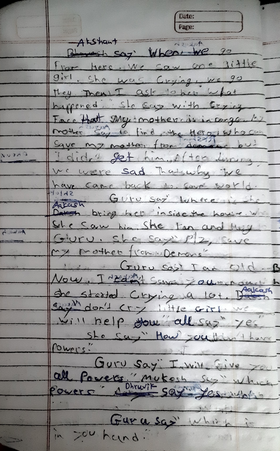 Date:
Page:
Akshant
say" When we go
From here. We saw one little
girl. She was crying. we go
they then I ask to her what
happened. She say with crying
Face that my mother is in danger. My
mother say to find the Hero who can
save my mother from but
I didn't get him. After hearing
we were sad That's why we
have came back to save world
Guru say" where is she
Aakash bring her inside the house
She saw him she ran and hug
Guru. She say" Plz, save
my mother from Demons"
Guru say" I am old
Now, I you
she started crying a lot. Aakash
say" don't cry little girl we
will help you" all say" yes"
She say" How you don't have
powers"
Guru say" I will give you
all powers" Mukesh say"
powers" Dhruvik say" yes,
Guru say" which is
in you hand.